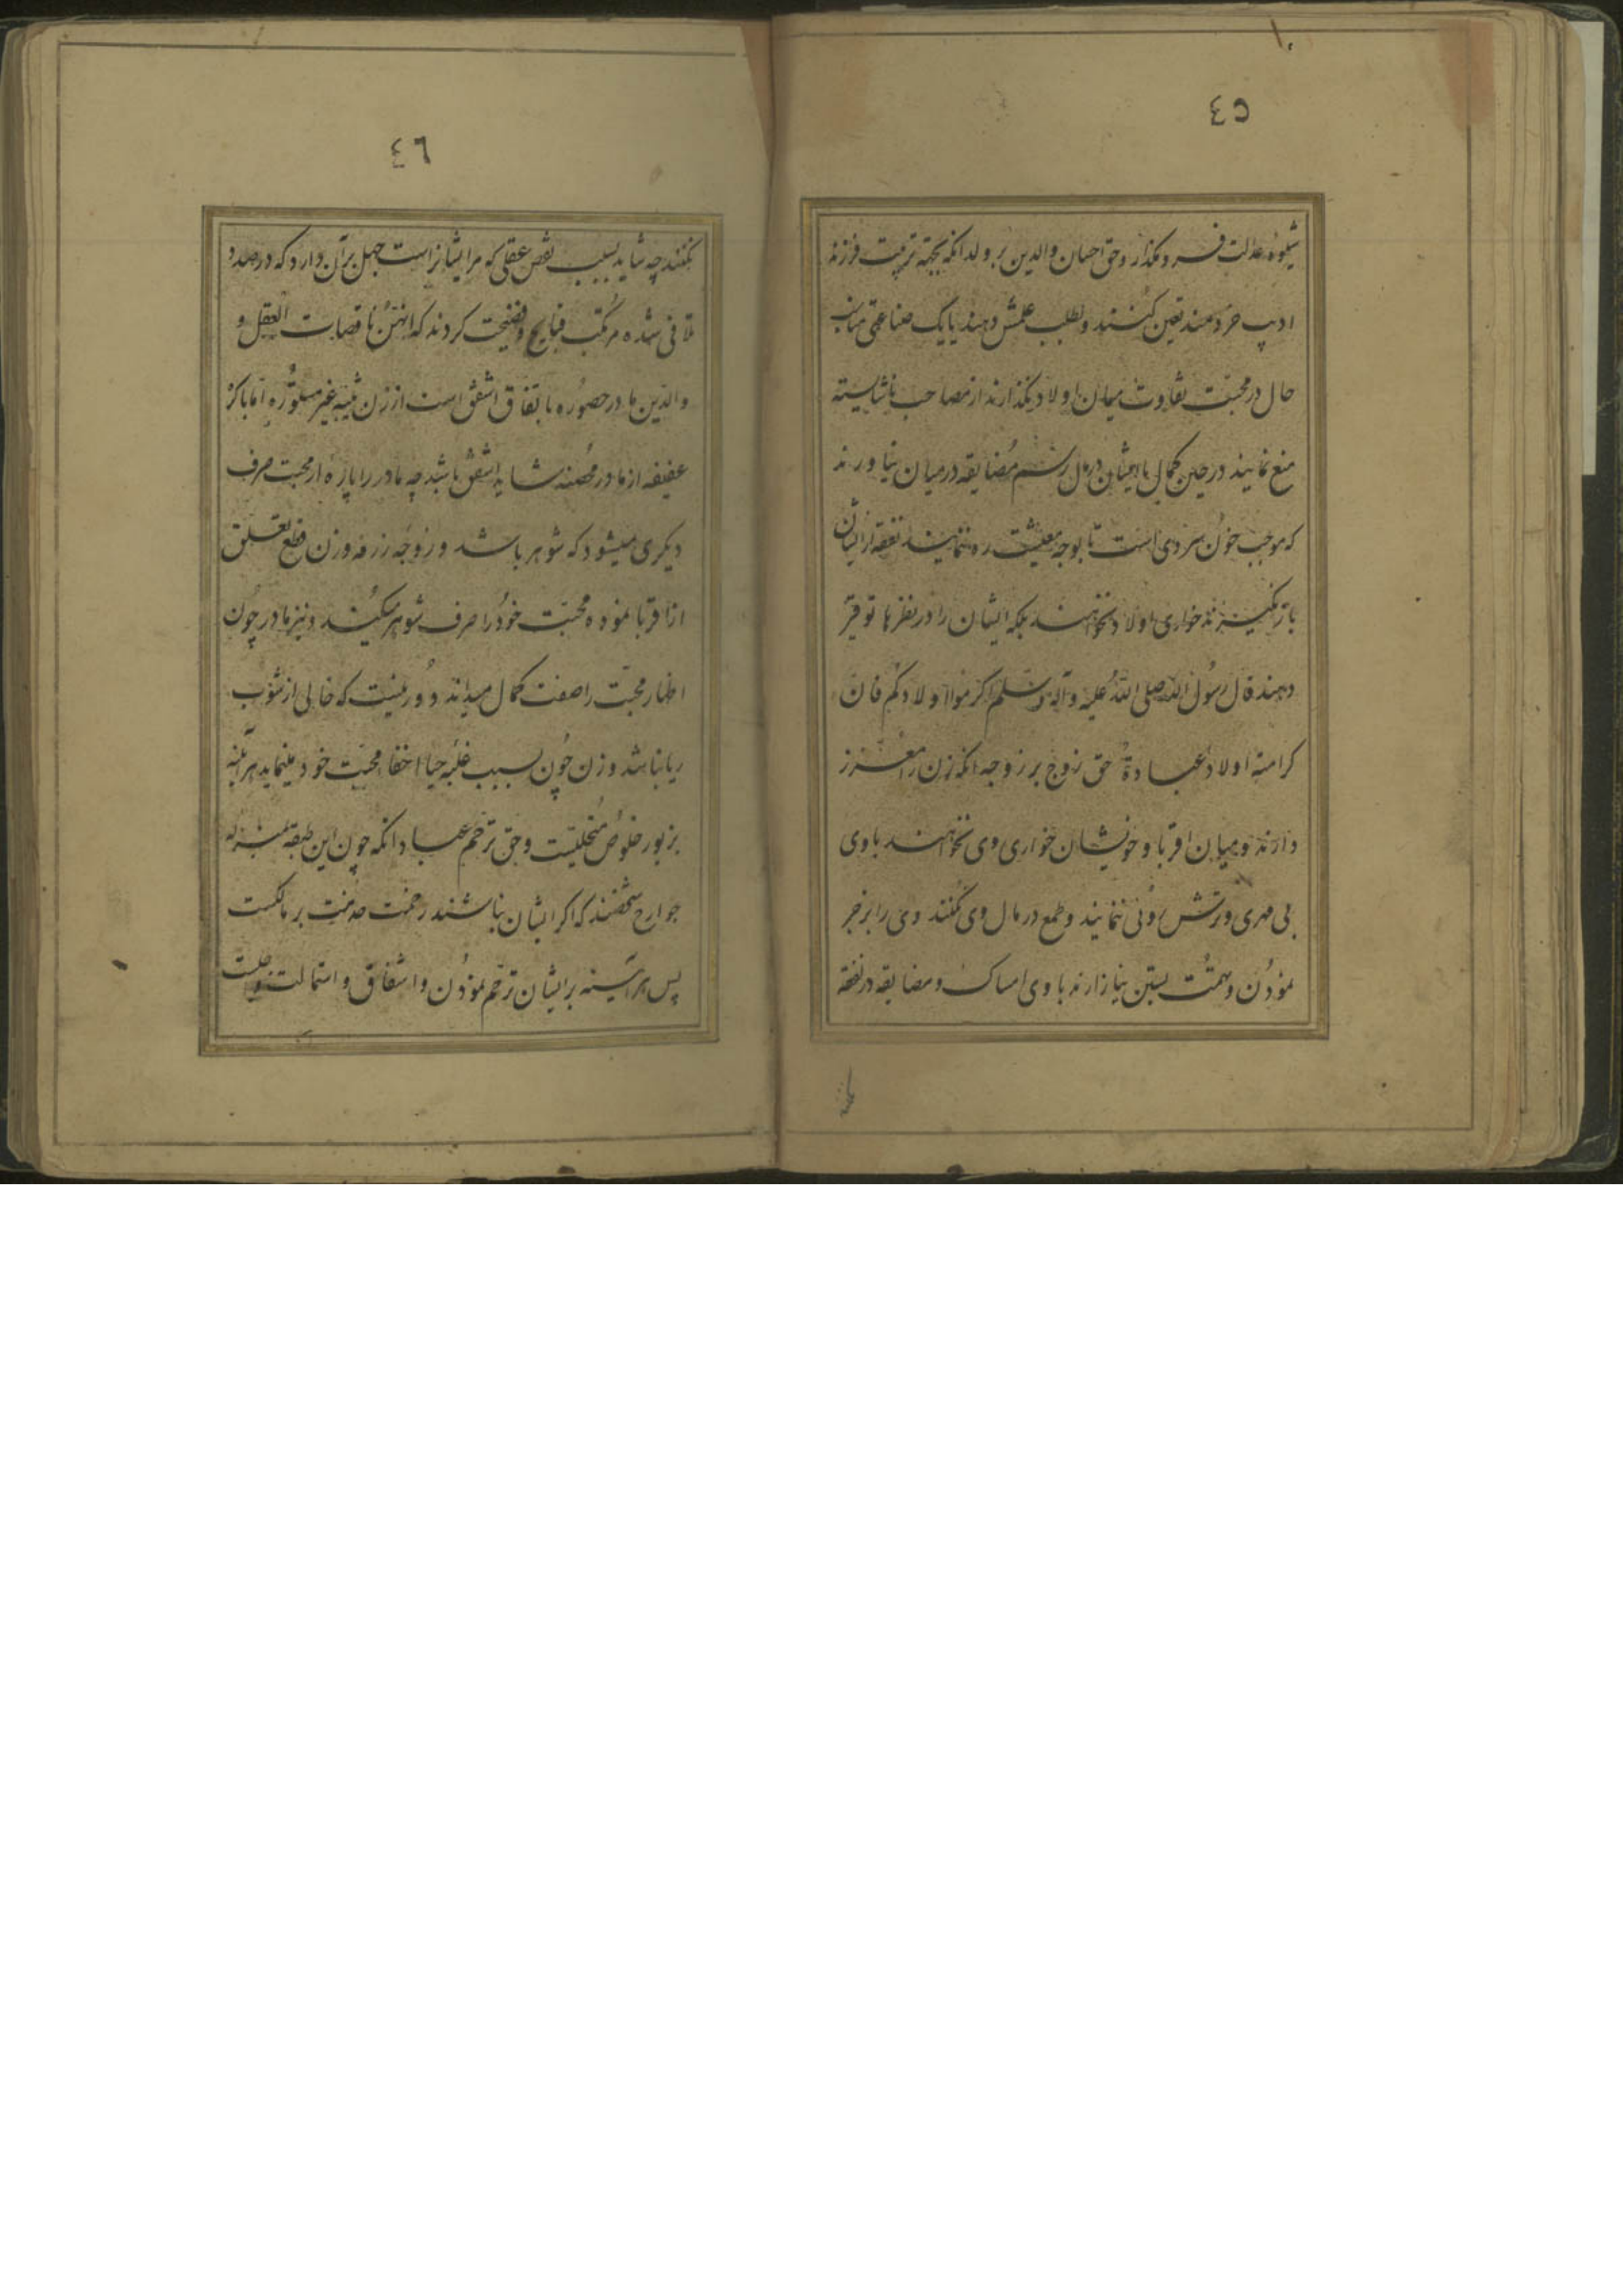 ٤٥
شیوه عدالت فرو مگذار و حق احسان والدین بر ولد انکه بجهة تربیت فرزند
ادیب خردمند تعین کنند و بطلب علمش دهند یا یک صناعتی مناسب
حال در محبت تفاوت میان اولاد نگذارند از مصاحب ناشایسته
منع نمایند در حین کمال با ایشان در مال رسم مضایقه درمیان نیاورند
که موجب خون سردی است تا بوجه معیشت رو ننمایند نفقه از ایشان
باز نگیرند خواری اولاد نخواهند بلکه ایشان را در نظرها توقیر
دهند قال رسول الله صلی الله علیه وآله وسلم اکرموا اولادکم فان
کرامة اولاد عبادة حق زوج بر زوجه انکه زن را معزز
دارند و میان اقربا و خویشان خواری وی نخواهند باوی
بی مهری و ترش روئی ننمایند و طمع در مال وی نکنند وی را بر خر
نمودن و همت بستن نیازارند باوی امساک و مضایقه در نفقه
٤٦
نکنند چه شاید بسبب نقص عقلی که مر ایشانراست جهل بر آن دارد که در صدد
تلافی شده مرتکب قبایح و فضیحت کردند که انهن ناقصات العقل و
والدین مادر حصوره باتفاق اشفق است از زن ثیبه غیر مستوره اما باکره
عفیفه از مادر محصنه شاید اشفق باشد چه مادر را پاره از محبت صرف
دیکری میشود که شوهر باشد و زوجه زرفه وزن قطع تعلق
از اقربا نموده محبت خود را صرف شوهر میکند و نیز مادر چون
اظهار محبت را صفت کمال میداند دور نیست که خالی از شوب
ریا نباشد و زن چون بسبب غلبه حیا اخفا محبت خود مینماید هرآینه
بزیور خلوص متحلیست و حق ترحم عباد انکه چون این طبقه بمنزله
جوارح شخصند که اکر ایشان نباشند زحمت خدمت بر مالکست
پس هرآینه بر ایشان ترحم نمودن و اشفاق و استمالت